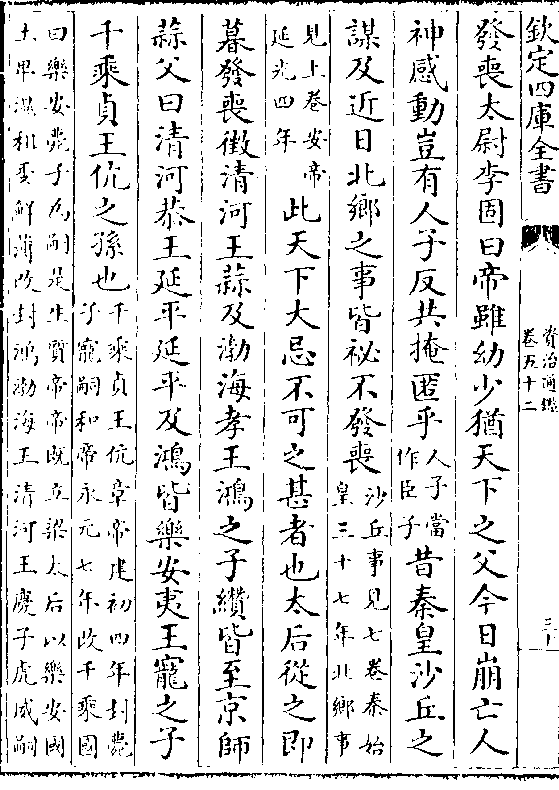 欽定四庫全書
資治通鑑
卷五十二
三十
發喪太尉李固曰帝雖幼少猶天下之父今日崩亡人
神感動豈有人子反共掩匿乎人子當作臣子昔秦皇沙丘之
謀及近日北鄉之事皆祕不發喪沙丘事見七卷秦始皇三十七年北鄉事
見上卷安帝延光四年此天下大忌不可之甚者也太后從之即
暮發喪徵清河王蒜及渤海孝王鴻之子纘皆至京師
蒜父曰清河恭王延平延平及鴻皆樂安夷王寵之子
千乘貞王伉之孫也千乘貞王伉章帝建初四年封薨子寵嗣和帝永元七年改千乘國
曰樂安薨子鴻嗣是生質帝帝既立梁太后以樂安國
土卑濕租委鮮薄改封鴻渤海王清河王慶子虎威嗣